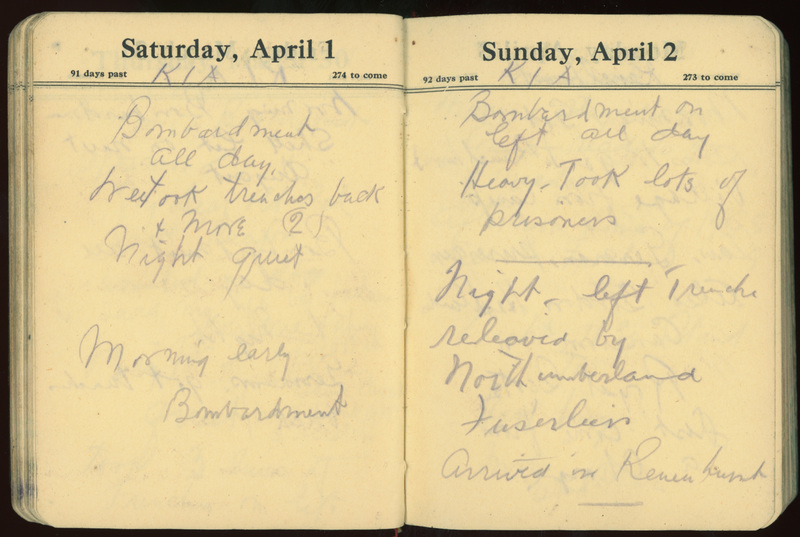 Saturday, April 1
91 days past
274 to come
KIA
Bombardment
all day.
We took trenches back
& More (2)
Night quiet
Morning early
Bombardment
Sunday, April 2
92 days past
273 to come
KIA
Bombardment on
left all day
Heavy. Took lots of
prisoners
Night - left Trenche
releaved by
Northumberland
Fuserliers
Arrived in